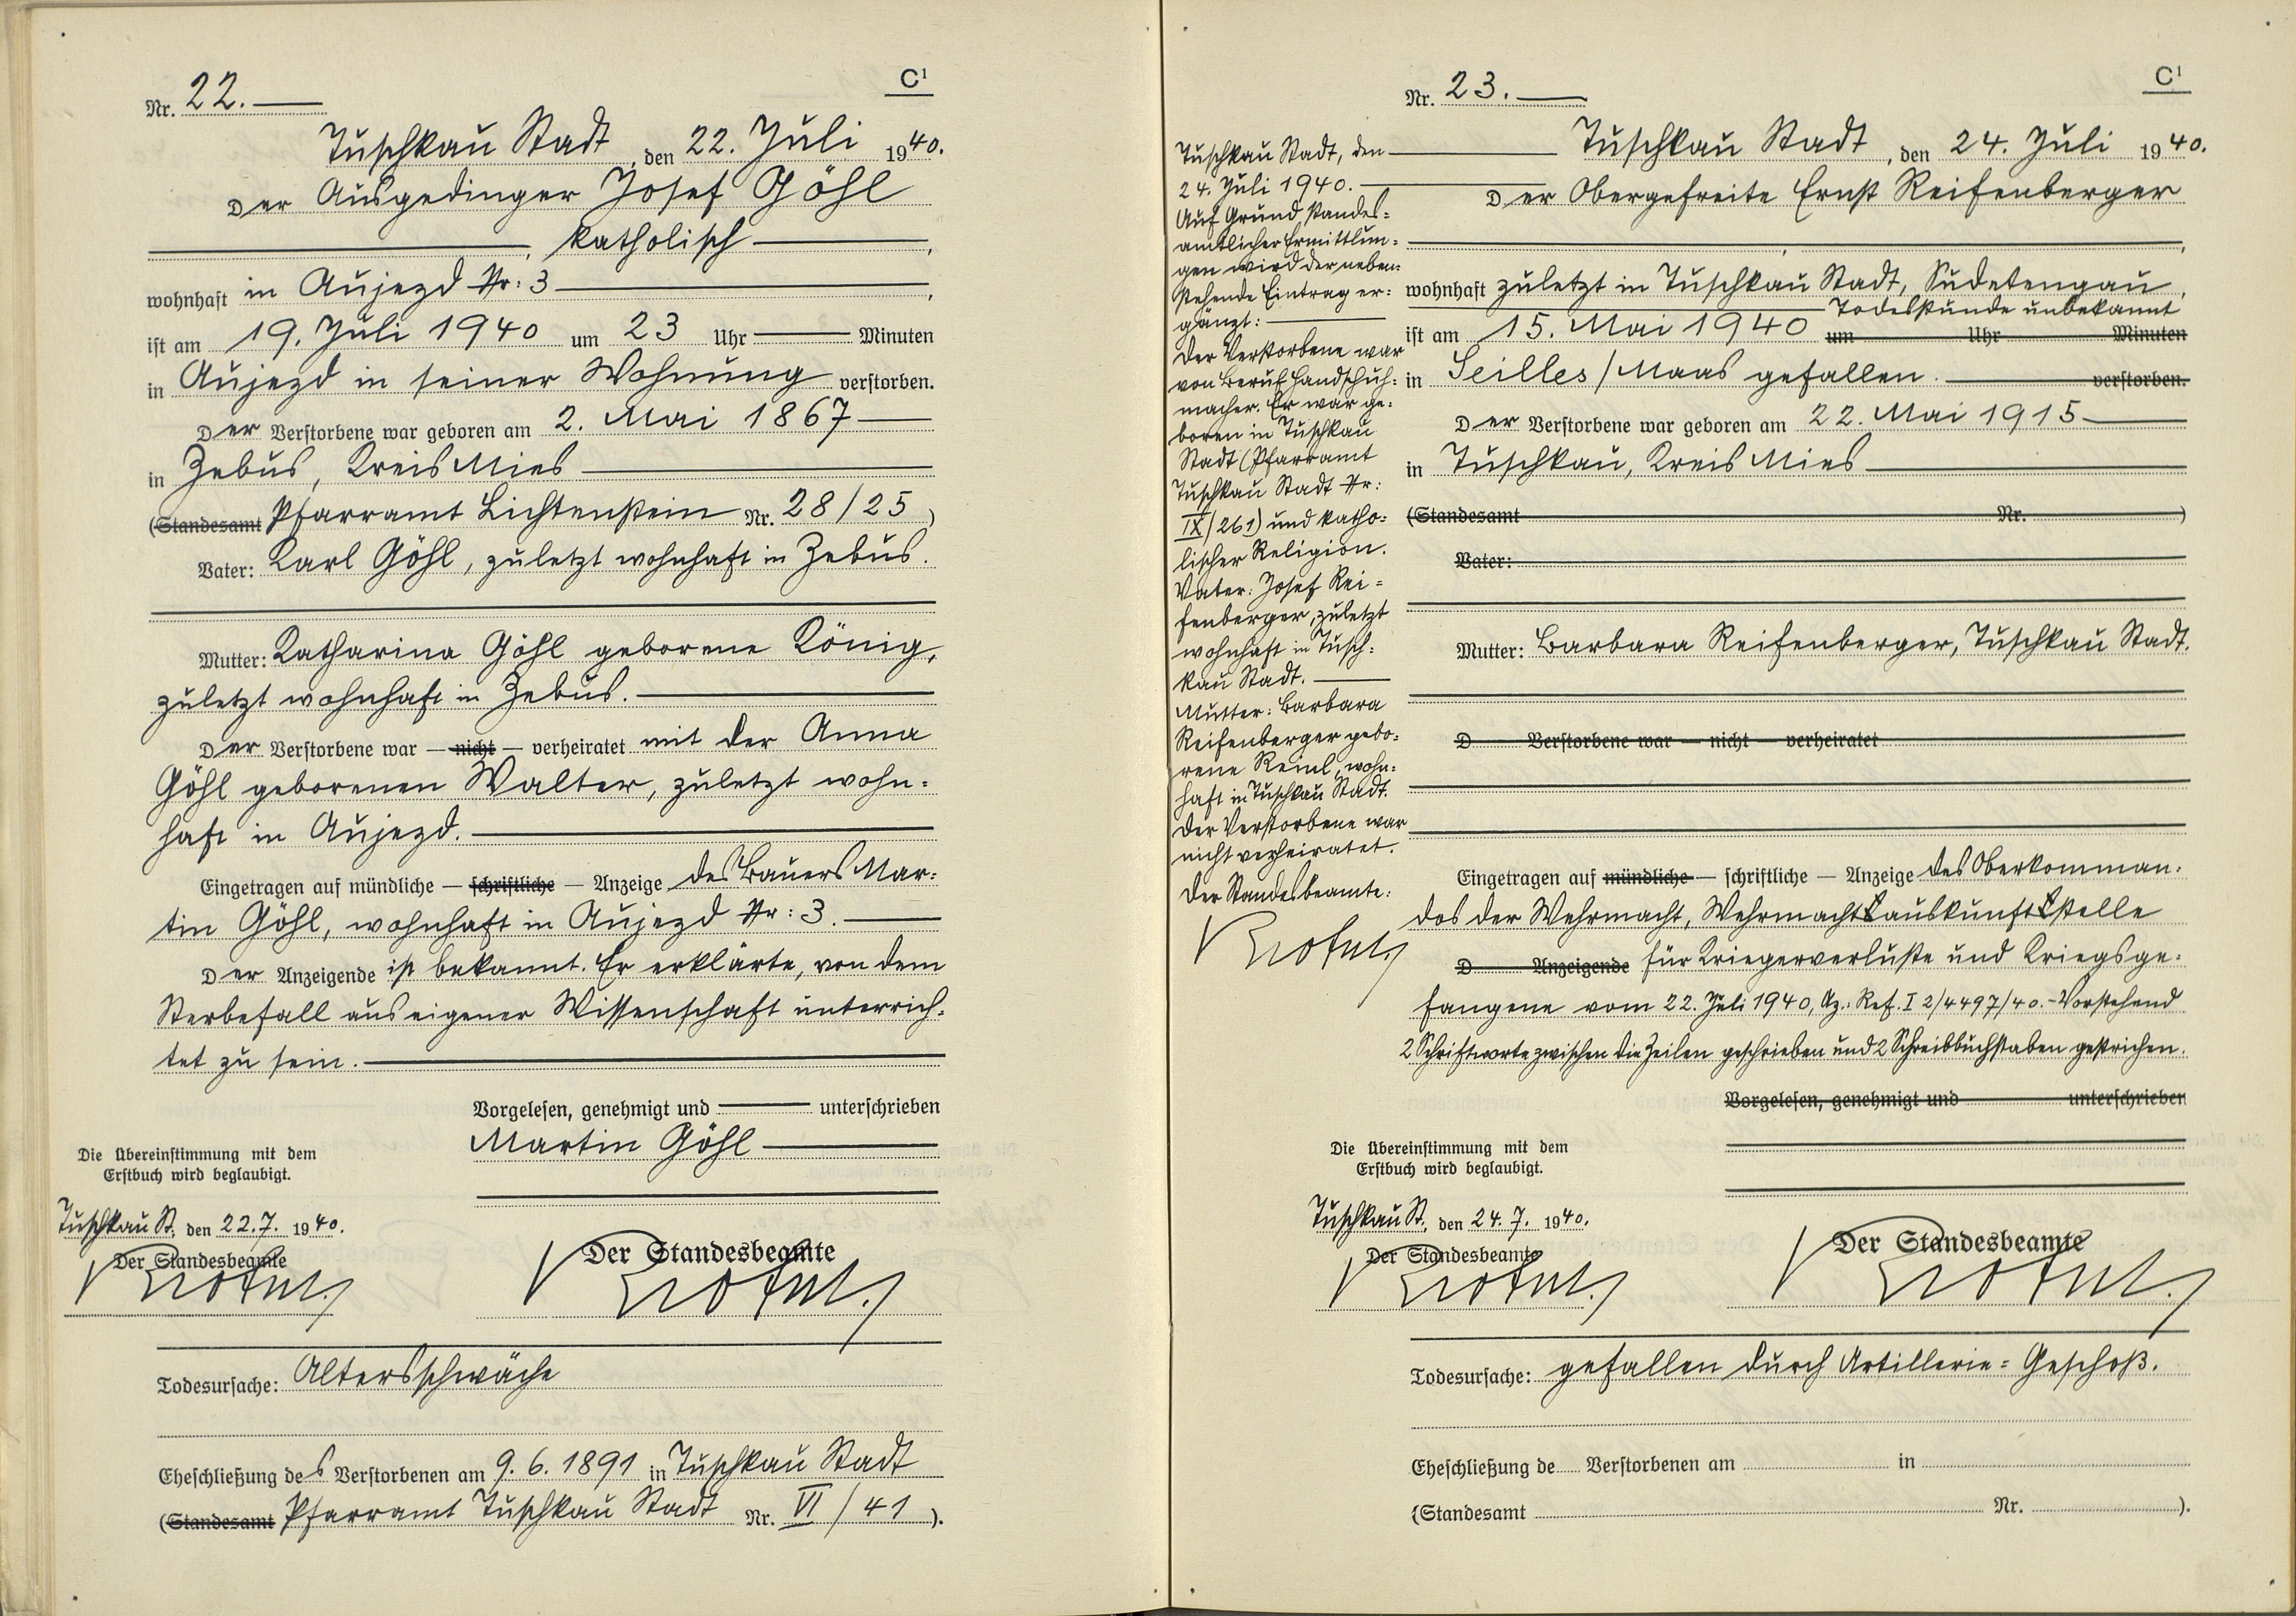 C¹
Nr. 22.
Tuschkau Stadt, den 22. Juli 1940.
Der Ausgedinger Josef Göhl
, katholisch ,
wohnhaft in Aujezd Nr: 3 ,
ist am 19. Juli 1940 um 23 Uhr Minuten
in Aujezd in seiner Wohnung verstorben.
Der Verstorbene war geboren am 2. Mai 1867
in Zebus, Kreis Mies
(Standesamt Pfarramt Lichtenstein Nr. 28/25 )
Vater: Karl Göhl, zuletzt wohnhaft in Zebus.
Mutter: Katharina Göhl geborene König,
zuletzt wohnhaft in Zebus.
Der Verstorbene war — nicht — verheiratet mit der Anna
Göhl geborenen Walter, zuletzt wohn=
haft in Aujezd.
Eingetragen auf mündliche — schriftliche — Anzeige des Bauers Mar=
tin Göhl, wohnhaft in Aujezd Nr: 3.
Der Anzeigende ist bekannt. Er erklärte, von dem
Sterbefall aus eigener Wissenschaft unterrich=
tet zu sein.
Vorgelesen, genehmigt und unterschrieben
Martin Göhl
Die Übereinstimmung mit dem
Erstbuch wird beglaubigt.
Tuschkau St. den 22.7. 1940.
Der Standesbeamte
Der Standesbeamte
Todesursache: Altersschwäche
Eheschließung des Verstorbenen am 9.6.1891 in Tuschkau Stadt
(Standesamt Pfarramt Tuschkau Stadt Nr. VI/41 ).
C¹
Nr. 23.
Tuschkau Stadt, den 24. Juli 1940.
Der Obergefreite Ernst Reifenberger
wohnhaft zuletzt in Tuschkau Stadt, Sudetengau,
Todesstunde unbekannt
ist am 15. Mai 1940 um Uhr Minuten
in Seilles/Maas gefallen. verstorben.
Der Verstorbene war geboren am 22. Mai 1915
in Tuschkau, Kreis Mies
(Standesamt Nr. )
Vater:
Mutter: Barbara Reifenberger, Tuschkau Stadt.
D Verstorbene war — nicht — verheiratet
Eingetragen auf mündliche — schriftliche — Anzeige des Oberkomman=
dos der Wehrmacht, Wehrmachtsauskunftsstelle
D Anzeigende für Kriegerverluste und Kriegsge=
fangene vom 22. Juli 1940, Az.: Ref. I 2/4497/40.-Vorstehend
2 Schriftworte zwischen die Zeilen geschrieben und 2 Schreibbuchstaben gestrichen.
Vorgelesen, genehmigt und unterschrieben
Tuschkau Stadt, den
24. Juli 1940.
Auf Grund standes=
amtlicher Ermittlun=
gen wird der neben=
stehende Eintrag er=
gänzt:
Der Verstorbene war
von Beruf Handschuh=
macher. Er war ge=
boren in Tuschkau
Stadt (Pfarramt
Tuschkau Stadt Nr:
IX/261) und katho=
lischer Religion.
Vater: Josef Rei=
fenberger, zuletzt
wohnhaft in Tusch=
kau Stadt.
Mutter: Barbara
Reifenberger gebo=
rene Reinl, wohn=
haft in Tuschkau Stadt.
Der Verstorbene war
nicht verheiratet.
Der Standesbeamte:
Die Übereinstimmung mit dem
Erstbuch wird beglaubigt.
Tuschkau St. den 24.7. 1940.
Der Standesbeamte
Der Standesbeamte
Todesursache: gefallen durch Artillerie=Geschoß.
Eheschließung de Verstorbenen am in
(Standesamt Nr. ).